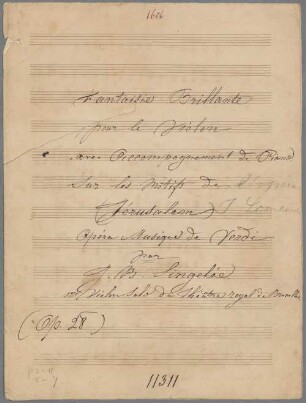 1616
Fantaisie Brillante
pour le Violon
avec Accompagnement de Piano
Sur les Motifs de
(Jérusalem)
Opéra Musique de Verdi
par
J. B. Singelée
Violon Solo du Théâtre royal de Bruxelles
(Op. 28)
11311